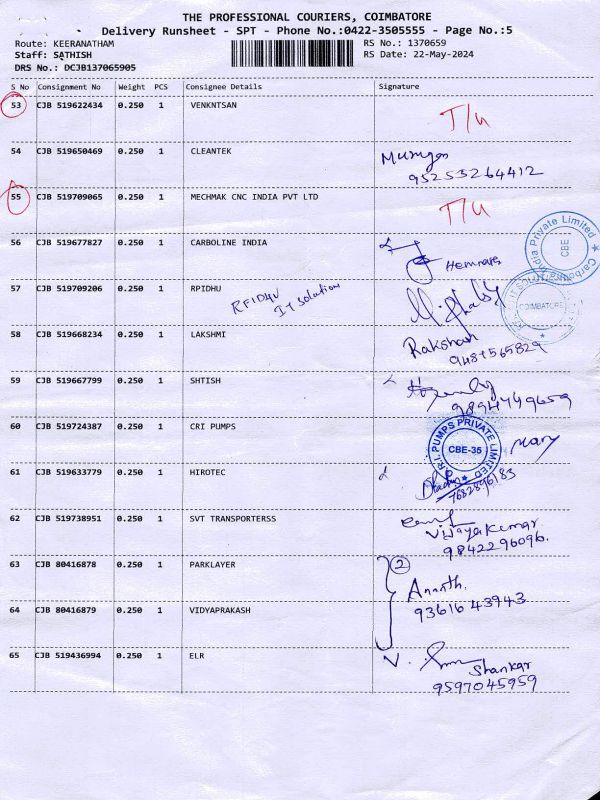 THE PROFESSIONAL COURIERS, COIMBATORE
Delivery Runsheet - SPT - Phone No.:0422-3505555 - Page No.:5
Route: KEERANATHAM RS No.: 1370659
Staff: SATHISH RS Date: 22-May-2024
DRS No.: DCJB137065905
S No Consignment No Weight PCS Consignee Details Signature
53 CJB 519622434 0.250 1 VENKNTSAN T/u
54 CJB 519650469 0.250 1 CLEANTEK Murugan
9525326 4412
55 CJB 519709065 0.250 1 MECHMAK CNC INDIA PVT LTD T/u
56 CJB 519677827 0.250 1 CARBOLINE INDIA
India Private Limited
CBE
57 CJB 519709206 0.250 1 RPIDHU RFID4U
IT Solution
IT SOLUTION
COIMBATORE
58 CJB 519668234 0.250 1 LAKSHMI Rakshan
59 CJB 519667799 0.250 1 SHTISH
9894749659
60 CJB 519724387 0.250 1 CRI PUMPS mary
R.I. PUMPS PRIVATE LIMITED
CBE-35
61 CJB 519633779 0.250 1 HIROTEC
7682896183
62 CJB 519738951 0.250 1 SVT TRANSPORTERSS
Vijayakumar
9842296096.
63 CJB 80416878 0.250 1 PARKLAYER 2
Ananth.
93616 43943
64 CJB 80416879 0.250 1 VIDYAPRAKASH
65 CJB 519436994 0.250 1 ELR
Shankar
9597045959